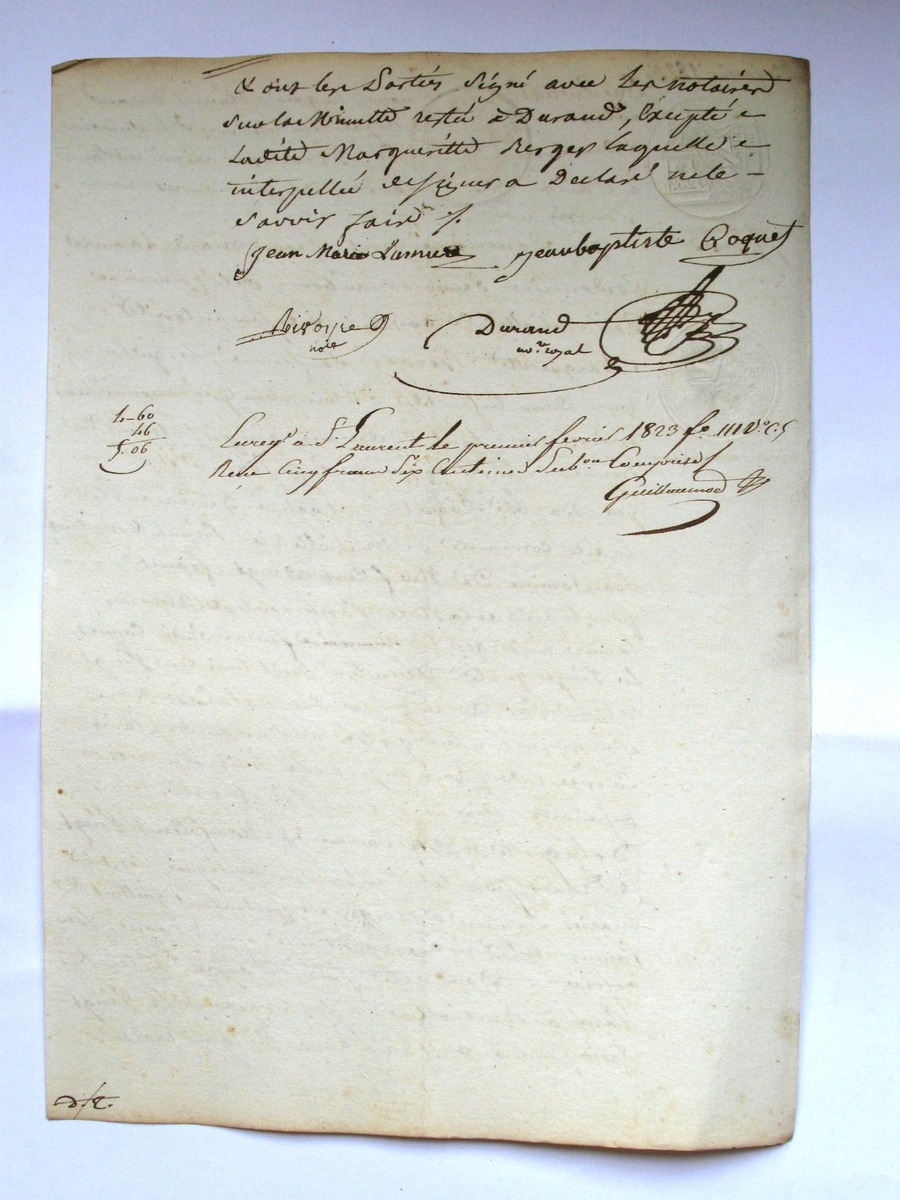 & ont les Parties Signé avec les notaires
Sur la Minutte resté à Durand, Excepté
Ladite Margueritte Berger laquelle
interpellée de signer a Déclaré ne le
savoir faire /.
Jean Marie Lamure jean baptiste Coquet
Durand
no.re royal
4-60
46
5.06
Enreg.é à S.t Laurent le premier fevrier 1823 f.o 111 V.o C. 5
Reçu Cinq francs Six Centimes Subon Comprise /
Guillaumod